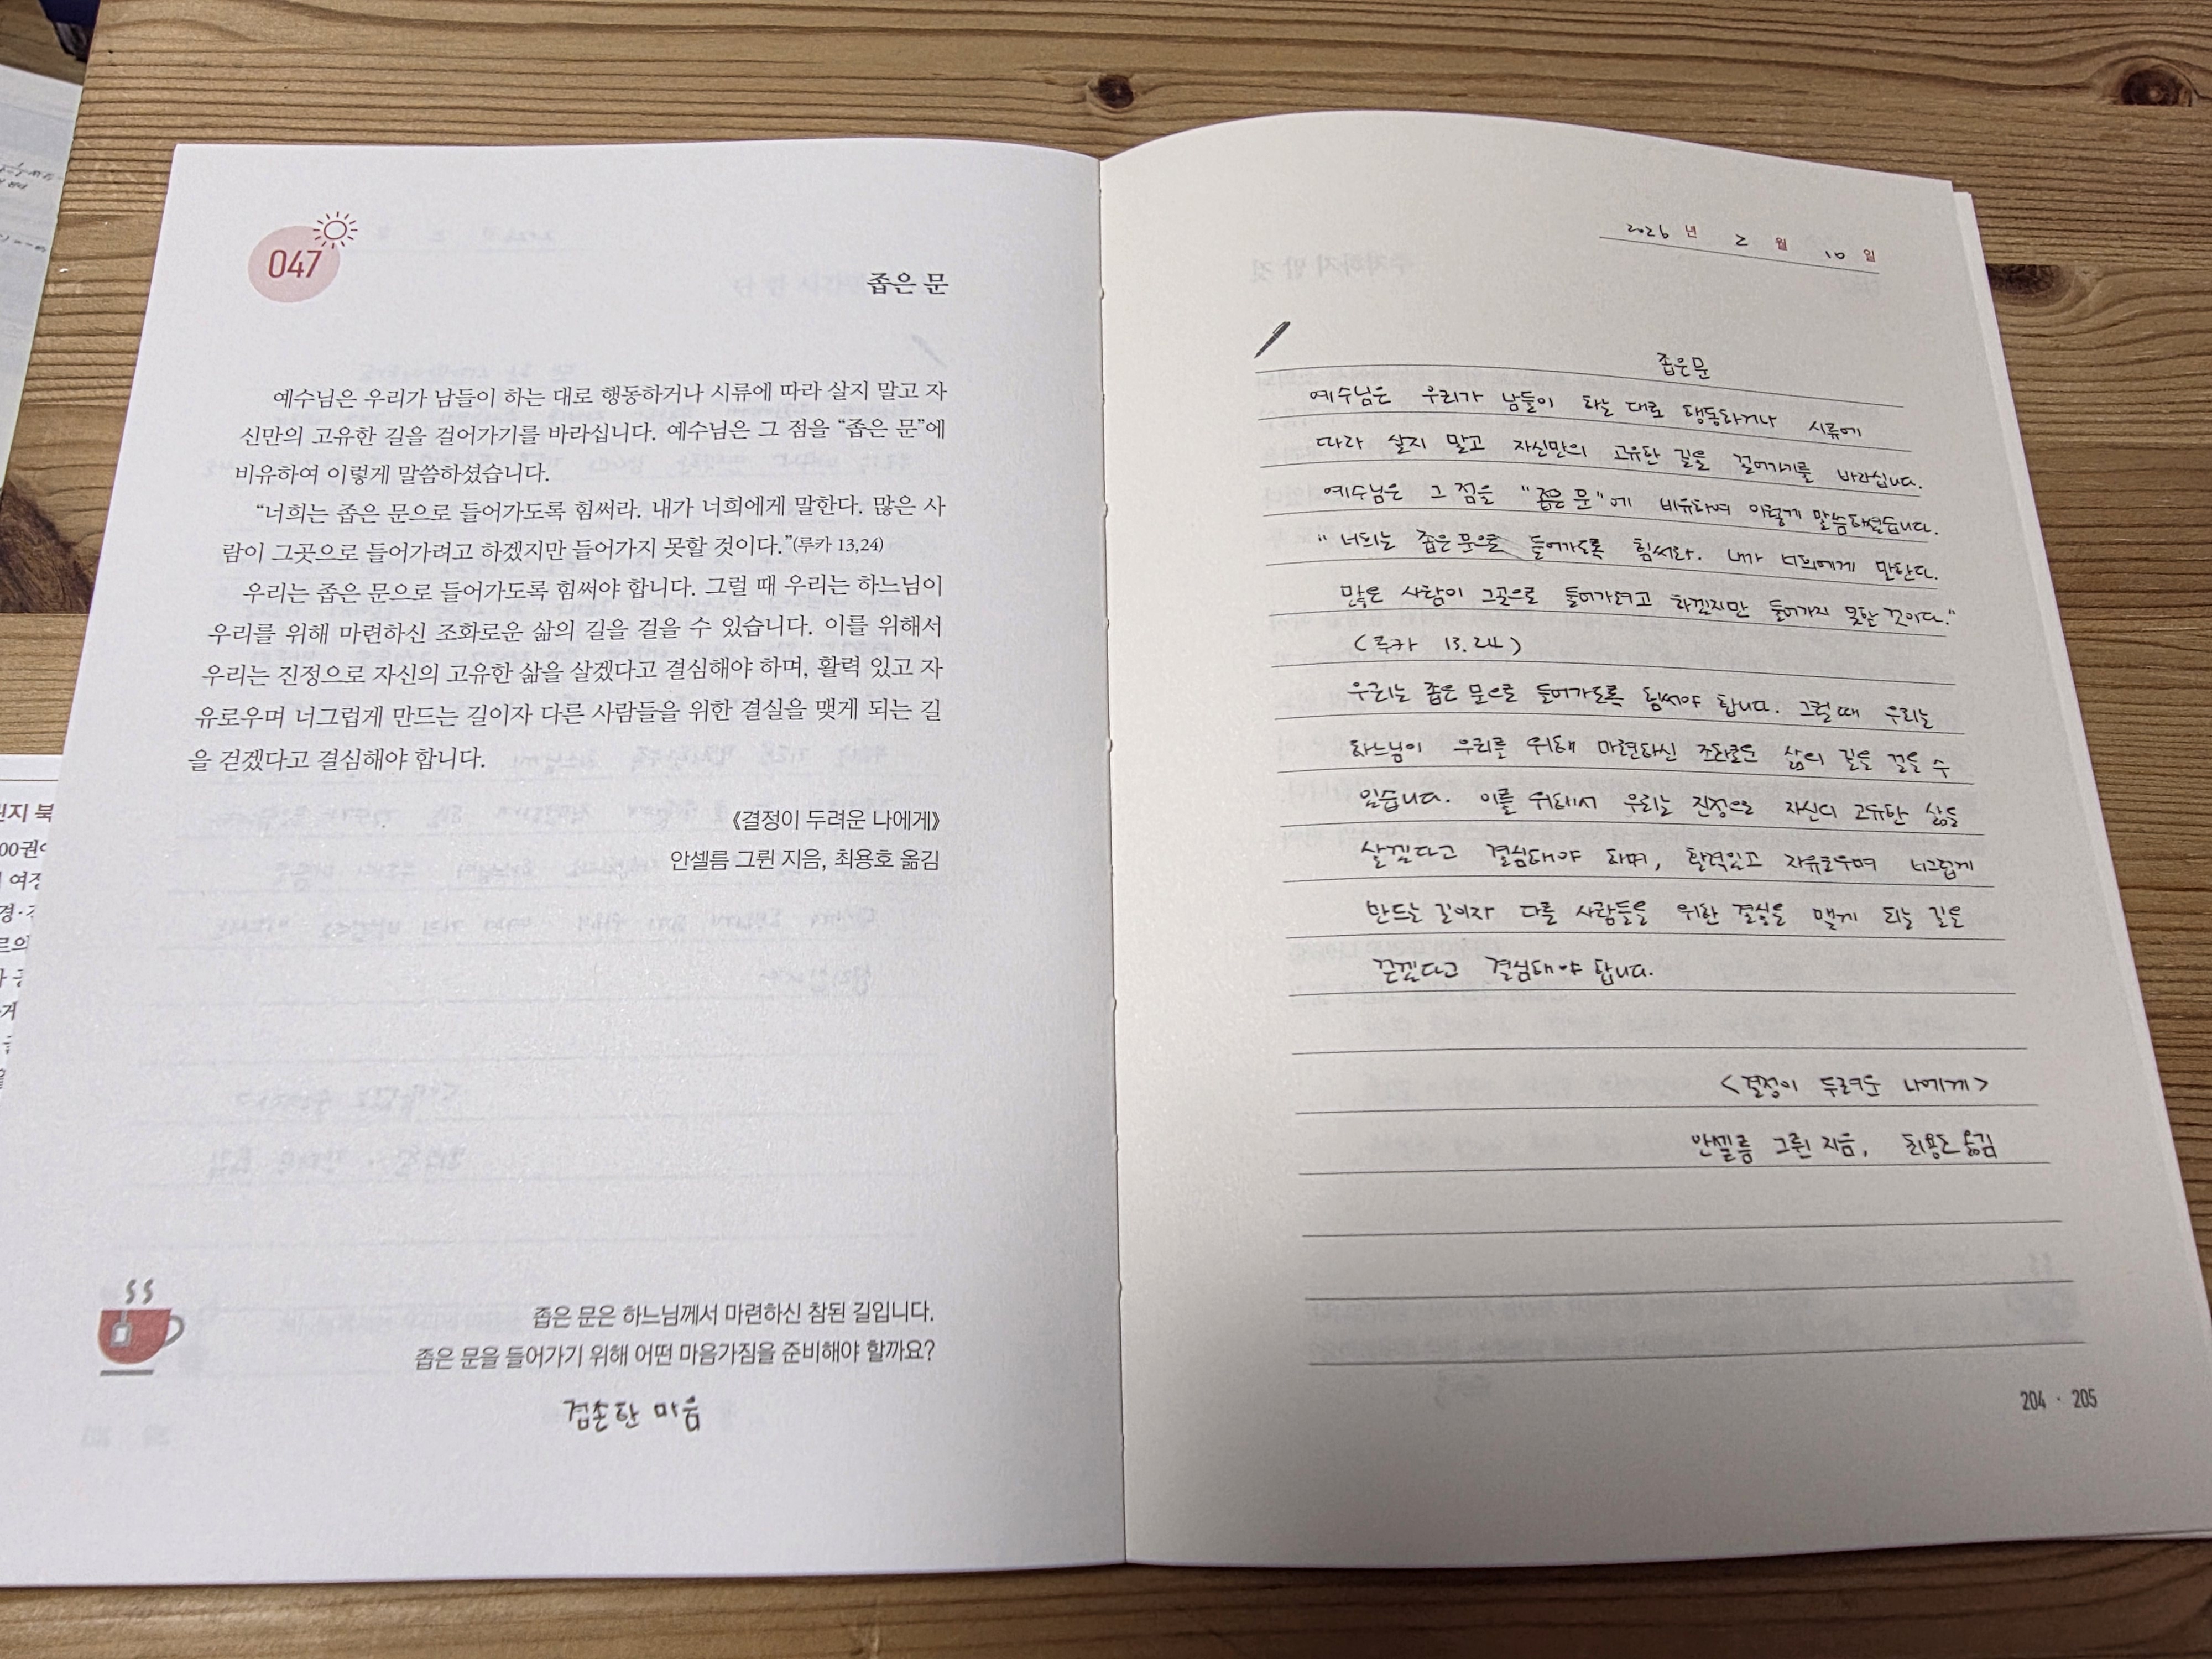 047
좁은 문
예수님은 우리가 남들이 하는 대로 행동하거나 시류에 따라 살지 말고 자
신만의 고유한 길을 걸어가기를 바라십니다. 예수님은 그 점을 “좁은 문”에
비유하여 이렇게 말씀하셨습니다.
“너희는 좁은 문으로 들어가도록 힘써라. 내가 너희에게 말한다. 많은 사
람이 그곳으로 들어가려고 하겠지만 들어가지 못할 것이다.”(루카 13,24)
우리는 좁은 문으로 들어가도록 힘써야 합니다. 그럴 때 우리는 하느님이
우리를 위해 마련하신 조화로운 삶의 길을 걸을 수 있습니다. 이를 위해서
우리는 진정으로 자신의 고유한 삶을 살겠다고 결심해야 하며, 활력 있고 자
유로우며 너그럽게 만드는 길이자 다른 사람들을 위한 결실을 맺게 되는 길
을 걷겠다고 결심해야 합니다.
《결정이 두려운 나에게》
안셀름 그륀 지음, 최용호 옮김
좁은 문은 하느님께서 마련하신 참된 길입니다.
좁은 문을 들어가기 위해 어떤 마음가짐을 준비해야 할까요?
겸손한 마음
2026 년 2 월 10 일
좁은문
예수님은 우리가 남들이 하는 대로 행동하거나 시류에
따라 살지 말고 자신만의 고유한 길을 걸어가기를 바라십니다.
예수님은 그 점을 "좁은 문"에 비유하여 이렇게 말씀하셨습니다.
"너희는 좁은 문으로 들어가도록 힘써라. 내가 너희에게 말한다.
많은 사람이 그곳으로 들어가려고 하겠지만 들어가지 못할 것이다."
(루카 13.24)
우리는 좁은 문으로 들어가도록 힘써야 합니다. 그럴 때 우리는
하느님이 우리를 위해 마련하신 조화로운 삶의 길을 걸을 수
있습니다. 이를 위해서 우리는 진정으로 자신의 고유한 삶을
살겠다고 결심해야 하며, 활력있고 자유로우며 너그럽게
만드는 길이자 다른 사람들을 위한 결실을 맺게 되는 길을
걷겠다고 결심해야 합니다.
<결정이 두려운 나에게>
안셀름 그륀 지음, 최용호 옮김
204 · 205